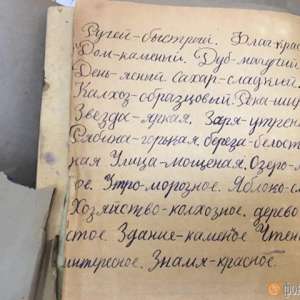 Ручей-быстрый. Флаг-крас
Дом-каменый. Дуб-могучий
День-ясный Сахар-сладкий.
Калхоз-образцовый. Река-ши
Звезда-яркая. Заря-утрен
Рябина-горькая. береза-белост
ная Улица-мощеная. Озеро-
ое. Утро-морозное. Яблоко-с
Хозяйство-колхозное. дерево
стое. Здание-каменое Чтен
интересное. Знамя-красное.